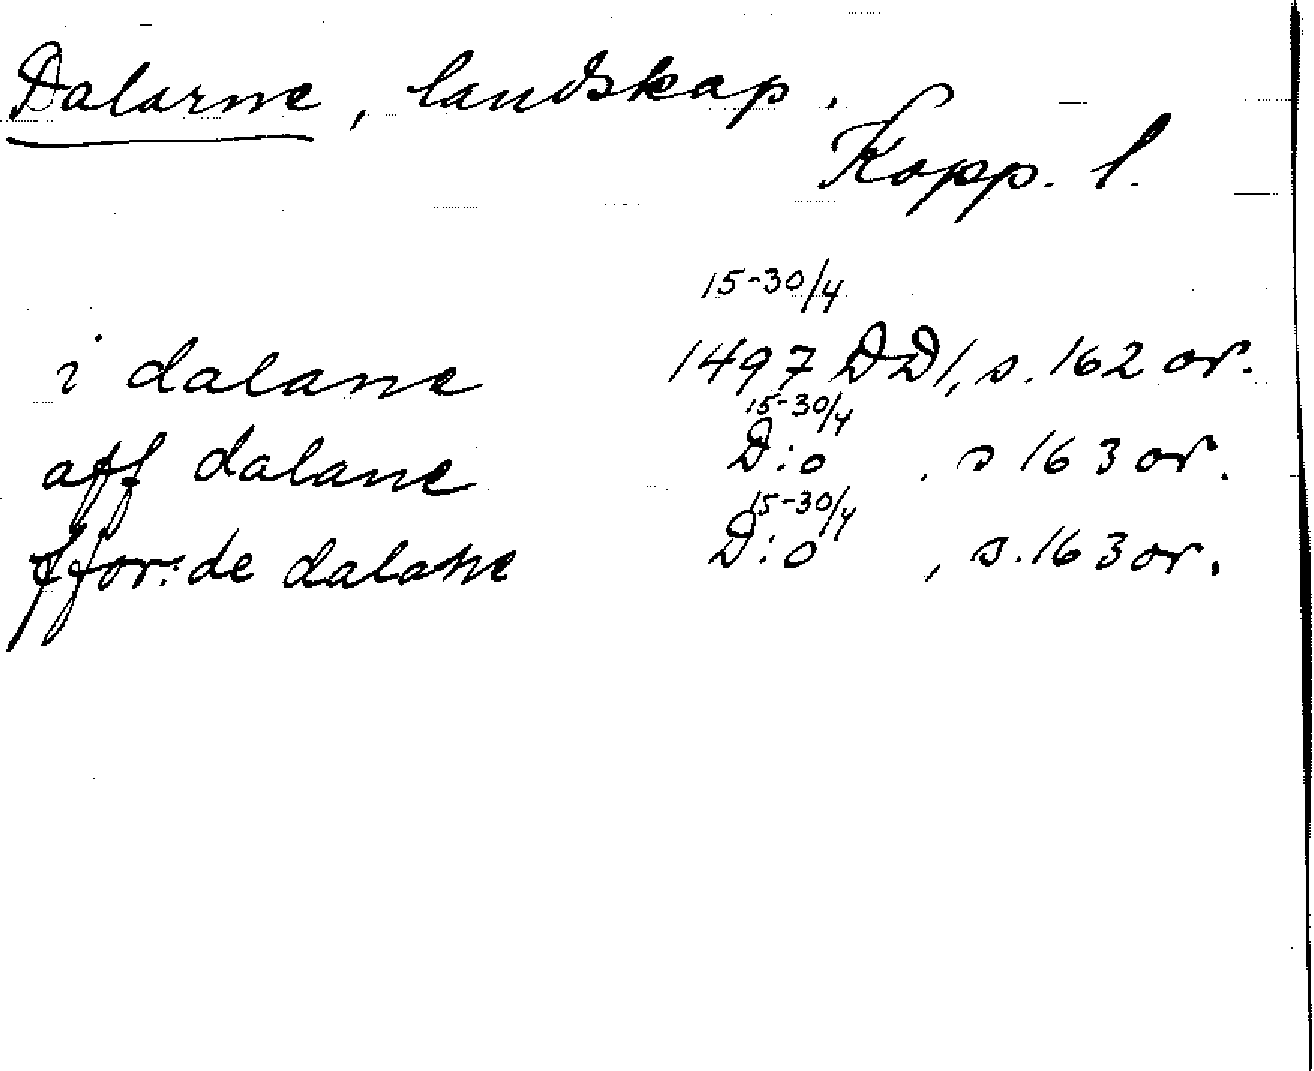 Dalarne, landskap.
Kopp. l.
15-30/4
i dalane 1497 DD1, s. 162 or.
15-30/4
aff dalane D:o , s 163 or.
15-30/4
ffor:de dalane D:o , s. 163 or.